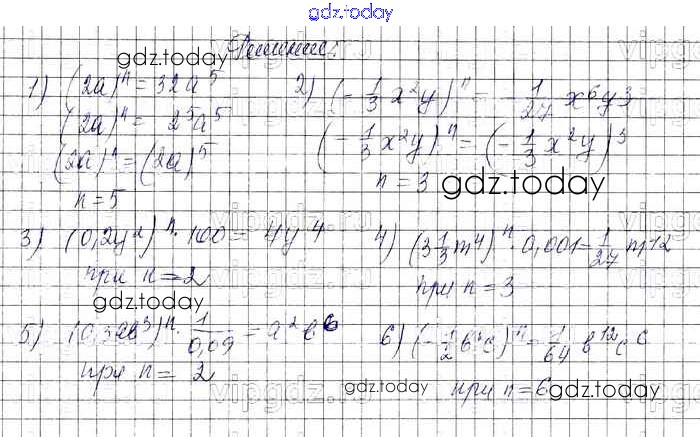 gdz.today
Решение:
gdz.today
1) (2a)ⁿ = 32a⁵
(2a)ⁿ = 2⁵a⁵
(2a)ⁿ = (2a)⁵
n = 5
2) (-1/3 x²y)ⁿ = -1/27 x⁶y³
(-1/3 x²y)ⁿ = (-1/3 x²y)³
n = 3
gdz.today
3) (0,2y²)ⁿ · 100 = 4y⁴
при n = 2
gdz.today
4) (3 1/3 m⁴)ⁿ · 0,001 = 1/27 m¹²
при n = 3
5) (0,3ab³)ⁿ · 1/0,09 = a²b⁶
при n = 2
6) (-1/2 b²c)ⁿ = 1/64 b¹²c⁶
при n = 6
gdz.today
gdz.today
vipgdz.ru